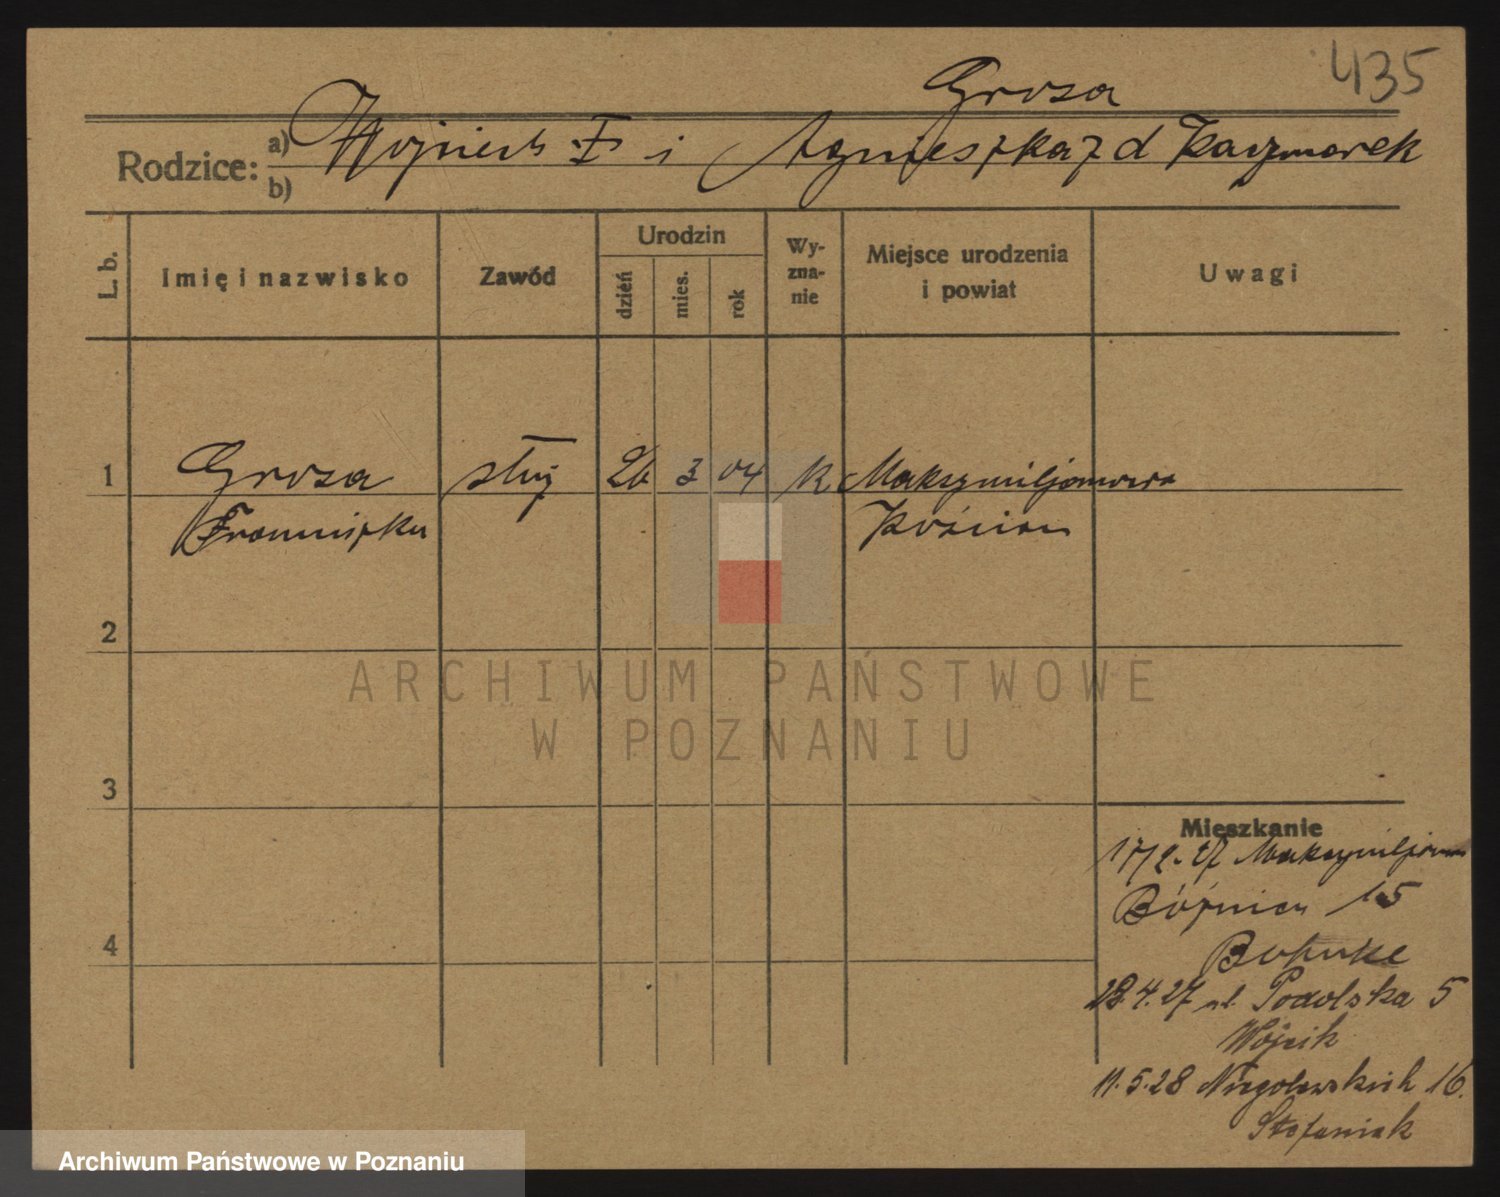 435
Groza
Rodzice: a) Wojciech i Agnieszka z d Kaczmarek
b)
L. b.
Imię i nazwisko
Zawód
Urodzin
dzień
mies.
rok
Wy-
zna-
nie
Miejsce urodzenia
i powiat
Uwagi
1
Groza służ 26 3 04 k Maksymiljanowo
Franciszka Kościan
2
3
4
Mieszkanie
27 Maksymiljanowo
Bóżnicza 15
28.4.27 ul. Podolska 5
Wójcik
11.5.28 Niegolewskich 16.
Stefaniak
ARCHIWUM PAŃSTWOWE
W POZNANIU
Archiwum Państwowe w Poznaniu